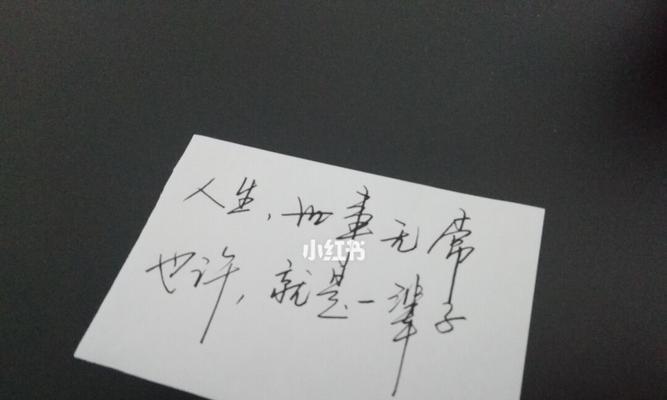 人生,世事无常
小红书
也许,就是一辈子